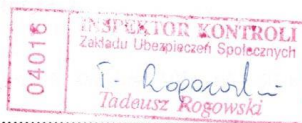 04016
INSPEKTOR KONTROLI
Zakładu Ubezpieczeń Społecznych
T. Rogowski
Tadeusz Rogowski